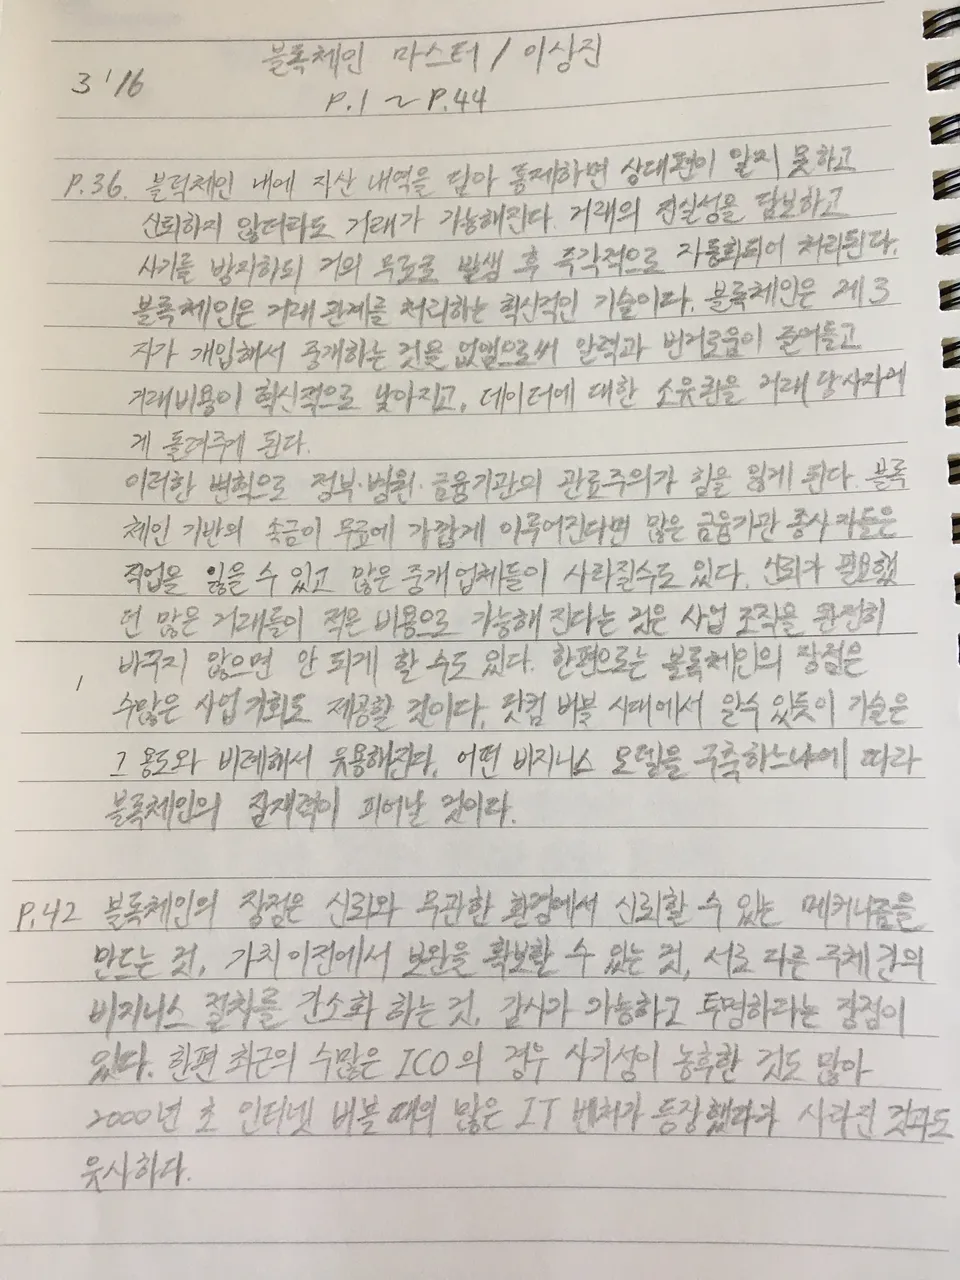 블록체인 마스터 / 이상진
3 / 16
P.1 ~ P.44
P.36. 블럭체인 내에 자산 내역을 담아 통제하면 상대편이 알지 못하고
신뢰하지 않더라도 거래가 가능해진다. 거래의 진실성을 담보하고
사기를 방지하되 거의 무료로 발생 후 즉각적으로 자동화되어 처리된다.
블록체인은 거래 관계를 처리하는 혁신적인 기술이다. 블록체인은 제 3
자가 개입해서 중개하는 것을 없앰으로써 알력과 번거로움이 줄어들고
거래비용이 혁신적으로 낮아지고, 데이터에 대한 소유권을 거래 당사자에
게 돌려주게 된다.
이러한 변혁으로 정부·병원·금융기관의 관료주의가 힘을 잃게 된다. 블록
체인 기반의 송금이 무료에 가깝게 이루어진다면 많은 금융기관 종사자들은
직업을 잃을 수 있고 많은 중개업체들이 사라질수도 있다. 신뢰가 필요했
던 많은 거래들이 적은 비용으로 가능해 진다는 것은 사업 조직을 완전히
바꾸지 않으면 안 되게 할 수도 있다. 한편으로는 블록체인의 장점은
수많은 사업 기회도 제공할 것이다. 닷컴 버블 시대에서 알수 있듯이 기술은
그 용도와 비례해서 유용해진다. 어떤 비지니스 모델을 구축하느냐에 따라
블록체인의 잠재력이 피어날 것이다.
P.42 블록체인의 장점은 신뢰와 무관한 환경에서 신뢰할 수 있는 메커니즘을
만드는 것, 가치이전에서 보안을 확보할 수 있는 것, 서로 다른 주체 간의
비지니스 절차를 간소화 하는 것, 감사가 가능하고 투명하라는 장점이
있다. 한편 최근의 수많은 ICO의 경우 사기성이 농후한 것도 많아
2000년 초 인터넷 버블 때의 많은 IT 벤처가 등장했다가 사라진 것과도
윳사하다.